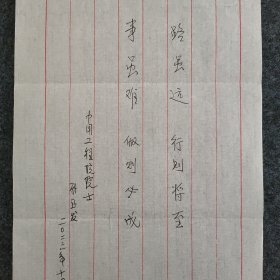 路虽远 行则将至
事虽难 做则必成
中国工程院院士
二〇二二年十